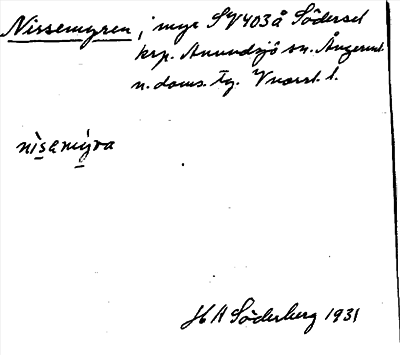 Nissemyren, myr SV 403 å Södersel
krp. Anundsjö sn. Ångerml.
n. doms. tg. Vnorrl. l.
nisemyra
H A Söderberg 1931